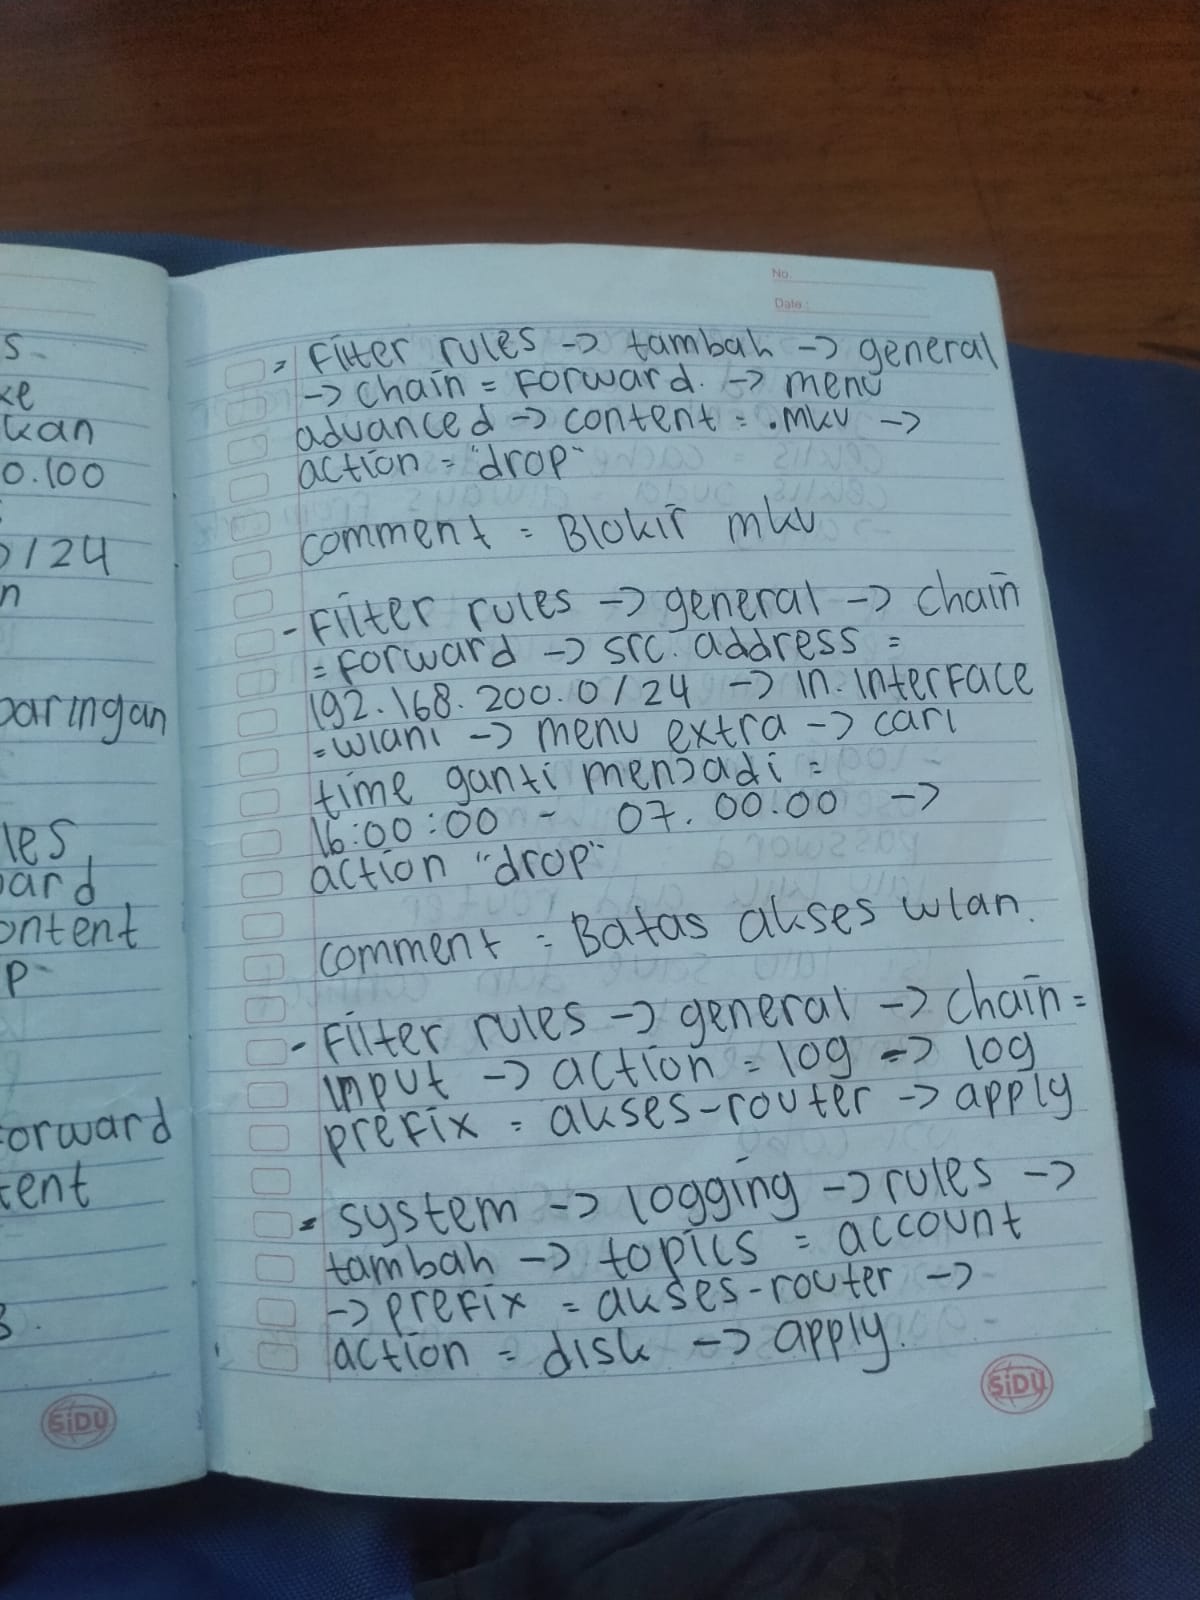 s.
ke
kan
0.100
0/24
n
baringan
les
ward
ontent
p"
forward
tent
3.
SiDU
No.
Date :
- Filter rules -> tambah -> general
-> chain = Forward. -> menu
advanced -> content = .mkv ->
action = "drop"
comment = Blokir mkv
- Filter rules -> general -> chain
= Forward -> src. address =
192.168.200.0/24 -> in. interface
= wlan1 -> menu extra -> cari
time ganti menjadi =
16:00:00 - 07.00.00 ->
action "drop"
comment = Batas akses wlan.
- Filter rules -> general -> chain =
input -> action = log -> log
prefix = akses-router -> apply
- system -> logging -> rules ->
tambah -> topics = account
-> prefix = akses-router ->
action = disk -> apply.
SiDU